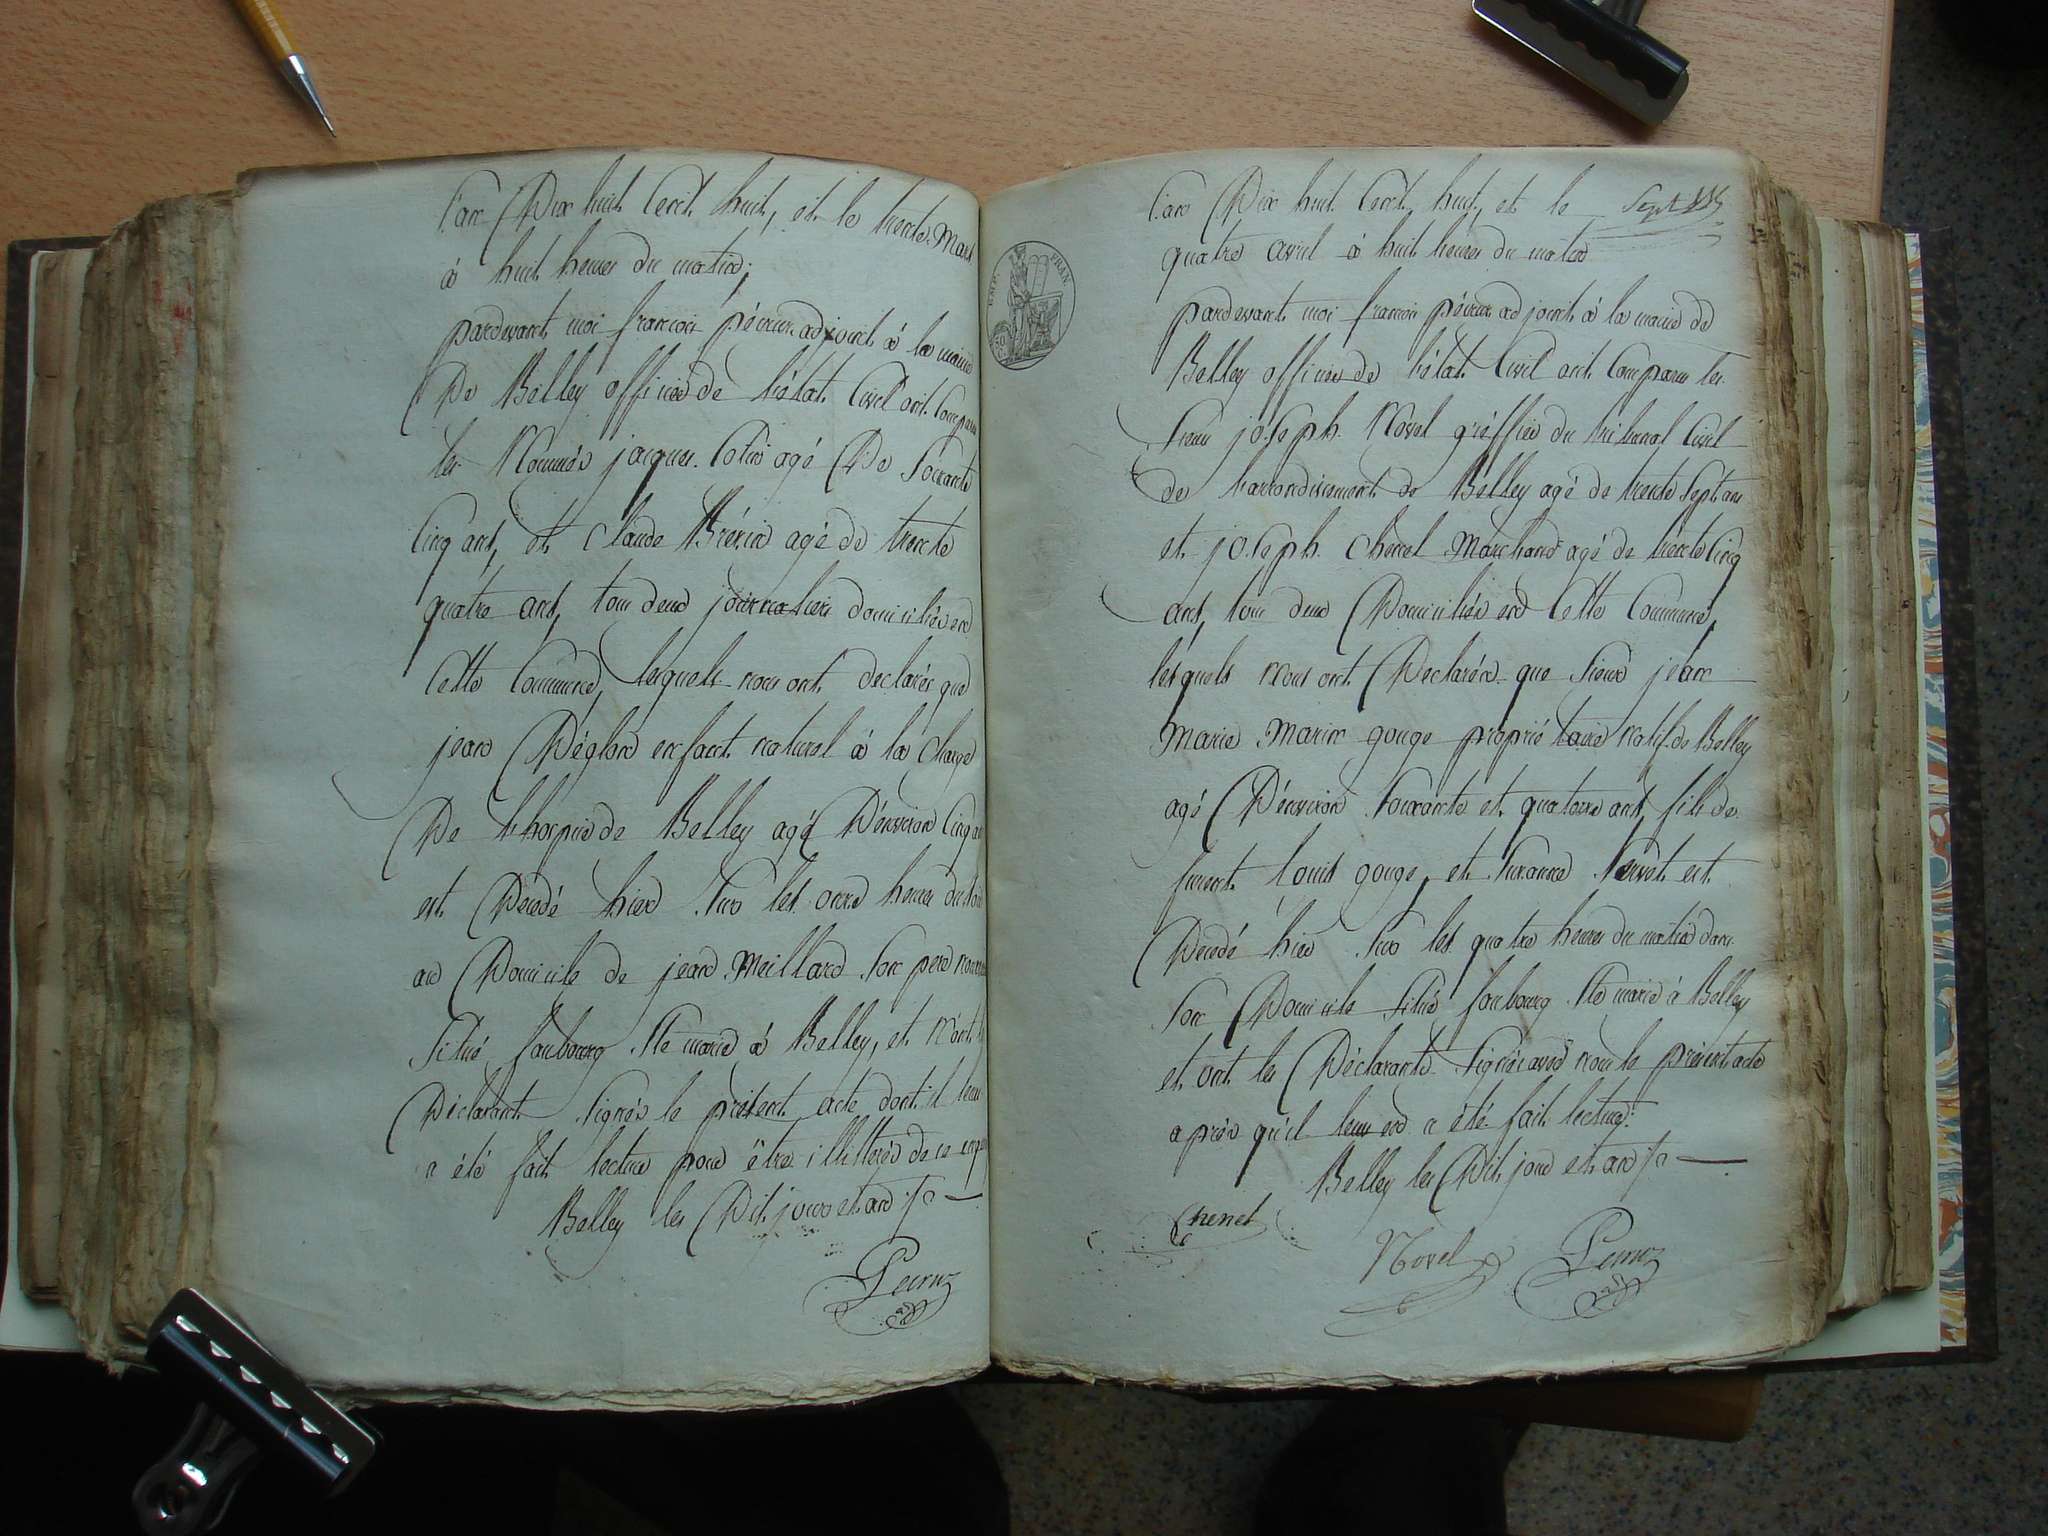 l'an Dix huit Cent huit, et le trente Mars
à huit heures du matin,
pardevant moi françois péiruz adjoint à la mairie
De Belley officier de l'état Civil ont Comparu
les Nommés jacques agé De Soixante
Cinq ans, et Claude agé de trente
quatre ans, tous deux journaliers domiciliés en
Cette Commune, lesquels nous ont declarés que
jean Déglon enfant naturel à la Charge
De l'hospice de Belley agé D'énviron Cinq ans
est Décédé hier Sur les onze heures du soir
au Domicile de jean Meilland Son pere nourricier
Situé faubourg Ste marie à Belley, et N'ont les
Déclarants Signés le présent acte dont il leur
a été fait lecture pour être illitterés de ce enquis
Belley les Dit jour et an
Peiruz
l'an Dix huit Cent huit, et le
quatre avril à huit heures du matin
pardevant moi françois péiruz adjoint à la mairie de
Belley officier de l'état Civil ont Comparu les
Sieurs joseph Novel gréffier du tribunal Civil
de l'arrondissement de Belley agé de trente Sept ans
et joseph Chenet Marchand agé de trente Cinq
ans, tous deux Domiciliés en Cette Commune,
lesquels nous ont Declarés que Sieur jean
Marie Marin gouge propriétaire natif de Belley
agé D'énviron Soixante et quatorze ans, fils de
furent Louis gouge, et Suzanne Servet est
Décédé hier Sur les quatre heures du matin dans
Son Domicile Situé faubourg Ste marie à Belley
et ont les Déclarants Signés avec nous le présent acte
après qu'il leur en a été fait lecture
Belley les Dit jour et an
Chenet
Novel
Peiruz
EMP. FRAN.
50 C.